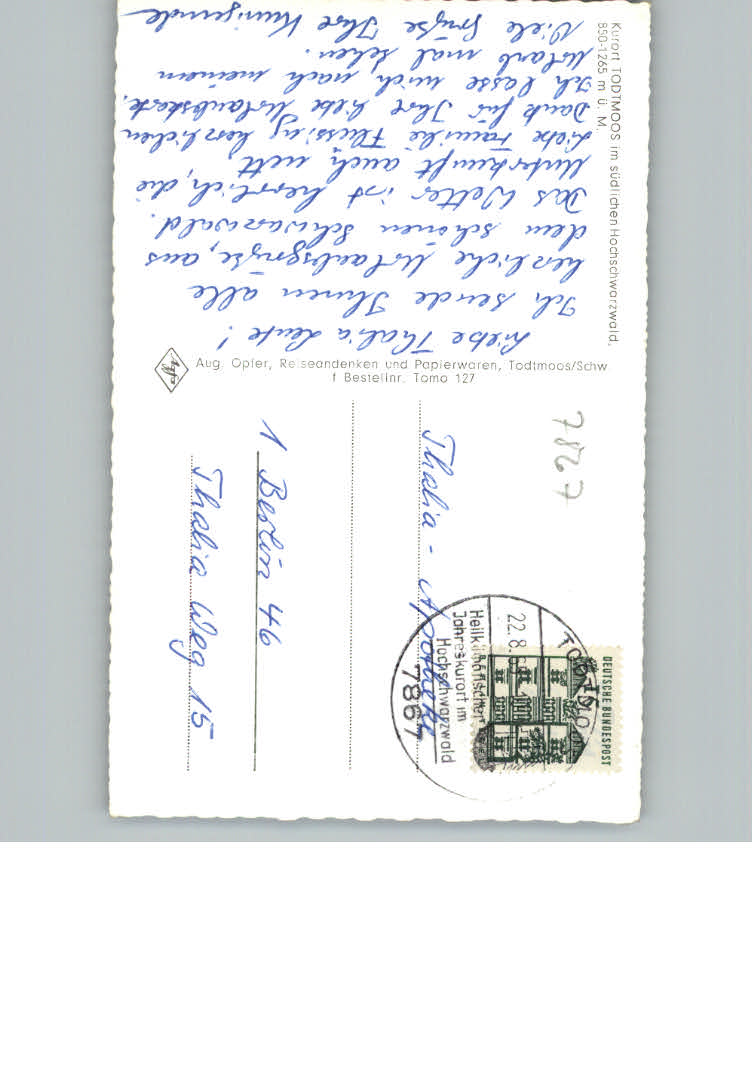 Kurort TODTMOOS im südlichen Hochschwarzwald,
850-1265 m ü. M.
Liebe Thalia Leute!
Ich sende Ihnen alle
herzliche Urlaubsgrüße, aus
dem schönen Schwarzwald.
Das Wetter ist herrlich, die
Unterkunft auch nett.
Liebe Familie Flessing, herzlichen
Dank für Ihre liebe Urlaubskarte.
Ich lasse mich nach meinem
Urlaub mal sehen.
Viele Grüße Ihre Kunigunde
Agfa
Aug. Opfer, Reiseandenken und Papierwaren, Todtmoos/Schw
f Bestellnr. Tomo 127
7867
DEUTSCHE BUNDESPOST
TODTMOOS
22.8.69
Heilklimatischer
Jahreskurort im
Hochschwarzwald
7867
Thalia - Apotheke
1 Berlin 46
Thalia Weg 15